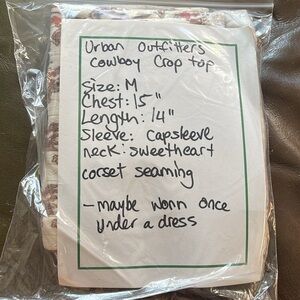 Urban Outfitters
Cowboy Crop top
Size: M
Chest: 15"
Length: 14"
Sleeve: Capsleeve
neck: sweetheart
corset seaming
- maybe worn once
under a dress